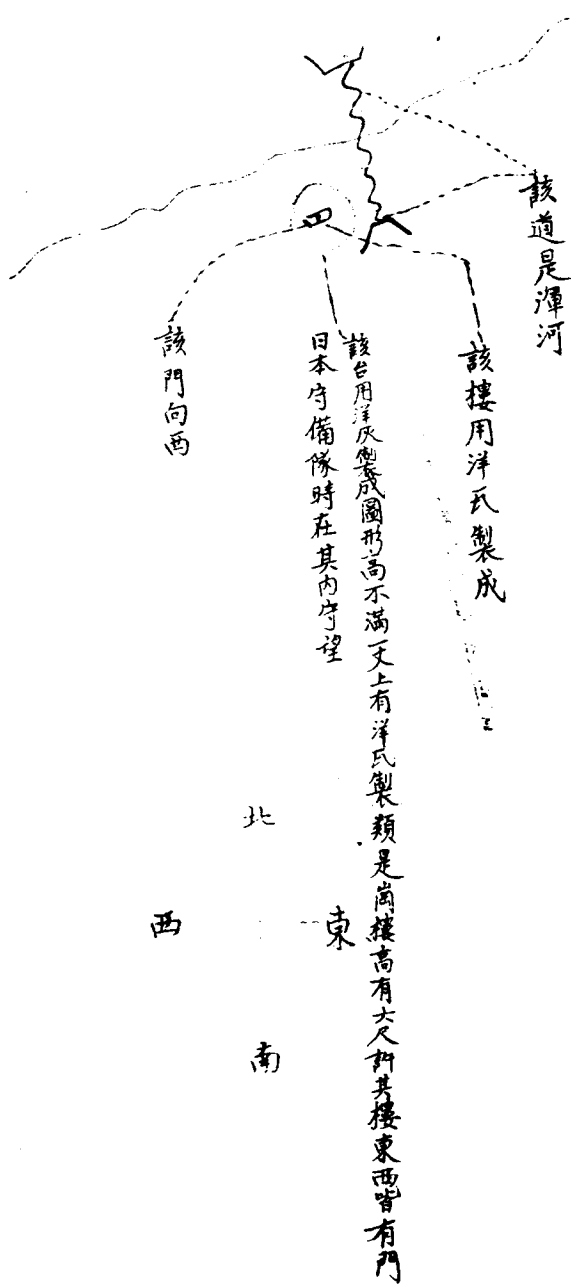 該道是渾河
該樓用洋瓦製成
該台用洋灰製成圓形高不滿一丈上有洋瓦製類是崗樓高有六尺許其樓東西皆有門
日本守備隊時在其內守望
該門向西
北
西
東
南